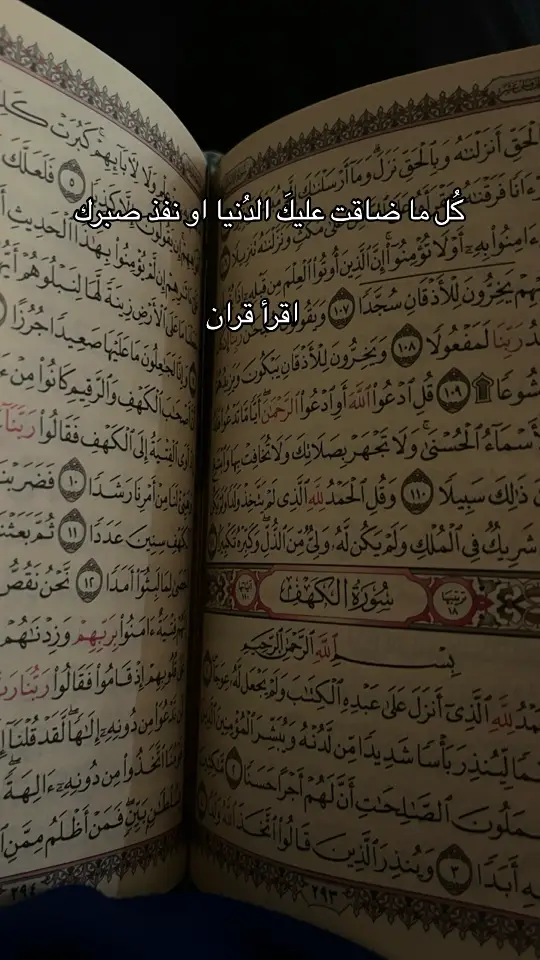 كُل ما ضاقت عليكَ الدُنيا او نفذ صبرك
اقرأ قران
الْحَقِّ أَنزَلْنَٰهُ وَبِالْحَقِّ نَزَلَ وَمَا أَرْسَلْنَٰكَ
ءَامِنُوا بِهِۦٓ أَوْ لَا تُؤْمِنُوٓا إِنَّ الَّذِينَ أُوتُوا الْعِلْمَ مِن قَبْلِهِۦٓ
يَخِرُّونَ لِلْأَذْقَانِ سُجَّدًا ١٠٧ وَيَقُولُونَ
رَبِّنَا لَمَفْعُولًا ١٠٨ وَيَخِرُّونَ لِلْأَذْقَانِ يَبْكُونَ وَيَزِيدُهُمْ
خُشُوعًا ۩ ١٠٩ قُلِ ادْعُوا اللَّهَ أَوِ ادْعُوا الرَّحْمَٰنَ أَيًّا مَّا تَدْعُوا
الْأَسْمَآءُ الْحُسْنَىٰ وَلَا تَجْهَرْ بِصَلَاتِكَ وَلَا تُخَافِتْ بِهَا وَابْتَغِ
ذَٰلِكَ سَبِيلًا ١١٠ وَقُلِ الْحَمْدُ لِلَّهِ الَّذِى لَمْ يَتَّخِذْ وَلَدًا وَلَمْ يَكُن
شَرِيكٌ فِى الْمُلْكِ وَلَمْ يَكُن لَّهُۥ وَلِىٌّ مِّنَ الذُّلِّ وَكَبِّرْهُ تَكْبِيرًا
سُورَةُ الْكَهْفِ
بِسْمِ اللَّهِ الرَّحْمَٰنِ الرَّحِيمِ
لِلَّهِ الَّذِىٓ أَنزَلَ عَلَىٰ عَبْدِهِ الْكِتَٰبَ وَلَمْ يَجْعَل لَّهُۥ عِوَجَا
لِّيُنذِرَ بَأْسًا شَدِيدًا مِّن لَّدُنْهُ وَيُبَشِّرَ الْمُؤْمِنِينَ الَّذِينَ
يَعْمَلُونَ الصَّٰلِحَٰتِ أَنَّ لَهُمْ أَجْرًا حَسَنًا ٢ مَّٰكِثِينَ
أَبَدًا ٣ وَيُنذِرَ الَّذِينَ قَالُوا اتَّخَذَ اللَّهُ وَلَدًا
٢٩٣
وَلَا لِءَابَآئِهِمْ كَبُرَتْ كَلِمَةً
إِلَّا كَذِبًا ٥ فَلَعَلَّكَ
إِن لَّمْ يُؤْمِنُوا بِهَٰذَا الْحَدِيثِ
مَا عَلَى الْأَرْضِ زِينَةً لَّهَا لِنَبْلُوَهُمْ أَيُّهُمْ
وَإِنَّا لَجَٰعِلُونَ مَا عَلَيْهَا صَعِيدًا جُرُزًا
أَصْحَٰبَ الْكَهْفِ وَالرَّقِيمِ كَانُوا مِنْ
أَوَى الْفِتْيَةُ إِلَى الْكَهْفِ فَقَالُوا رَبَّنَآ
لَنَا مِنْ أَمْرِنَا رَشَدًا ١٠ فَضَرَبْنَا
الْكَهْفِ سِنِينَ عَدَدًا ١١ ثُمَّ بَعَثْنَٰهُمْ
أَحْصَىٰ لِمَا لَبِثُوٓا أَمَدًا ١٢ نَّحْنُ نَقُصُّ
فِتْيَةٌ ءَامَنُوا بِرَبِّهِمْ وَزِدْنَٰهُمْ
قُلُوبِهِمْ إِذْ قَامُوا فَقَالُوا رَبُّنَا رَبُّ
نَّدْعُوَا مِن دُونِهِۦٓ إِلَٰهًا لَّقَدْ قُلْنَآ إِذًا
قَوْمُنَا اتَّخَذُوا مِن دُونِهِۦٓ ءَالِهَةً
بِسُلْطَٰنٍ بَيِّنٍ فَمَنْ أَظْلَمُ مِمَّنِ
٢٩٤